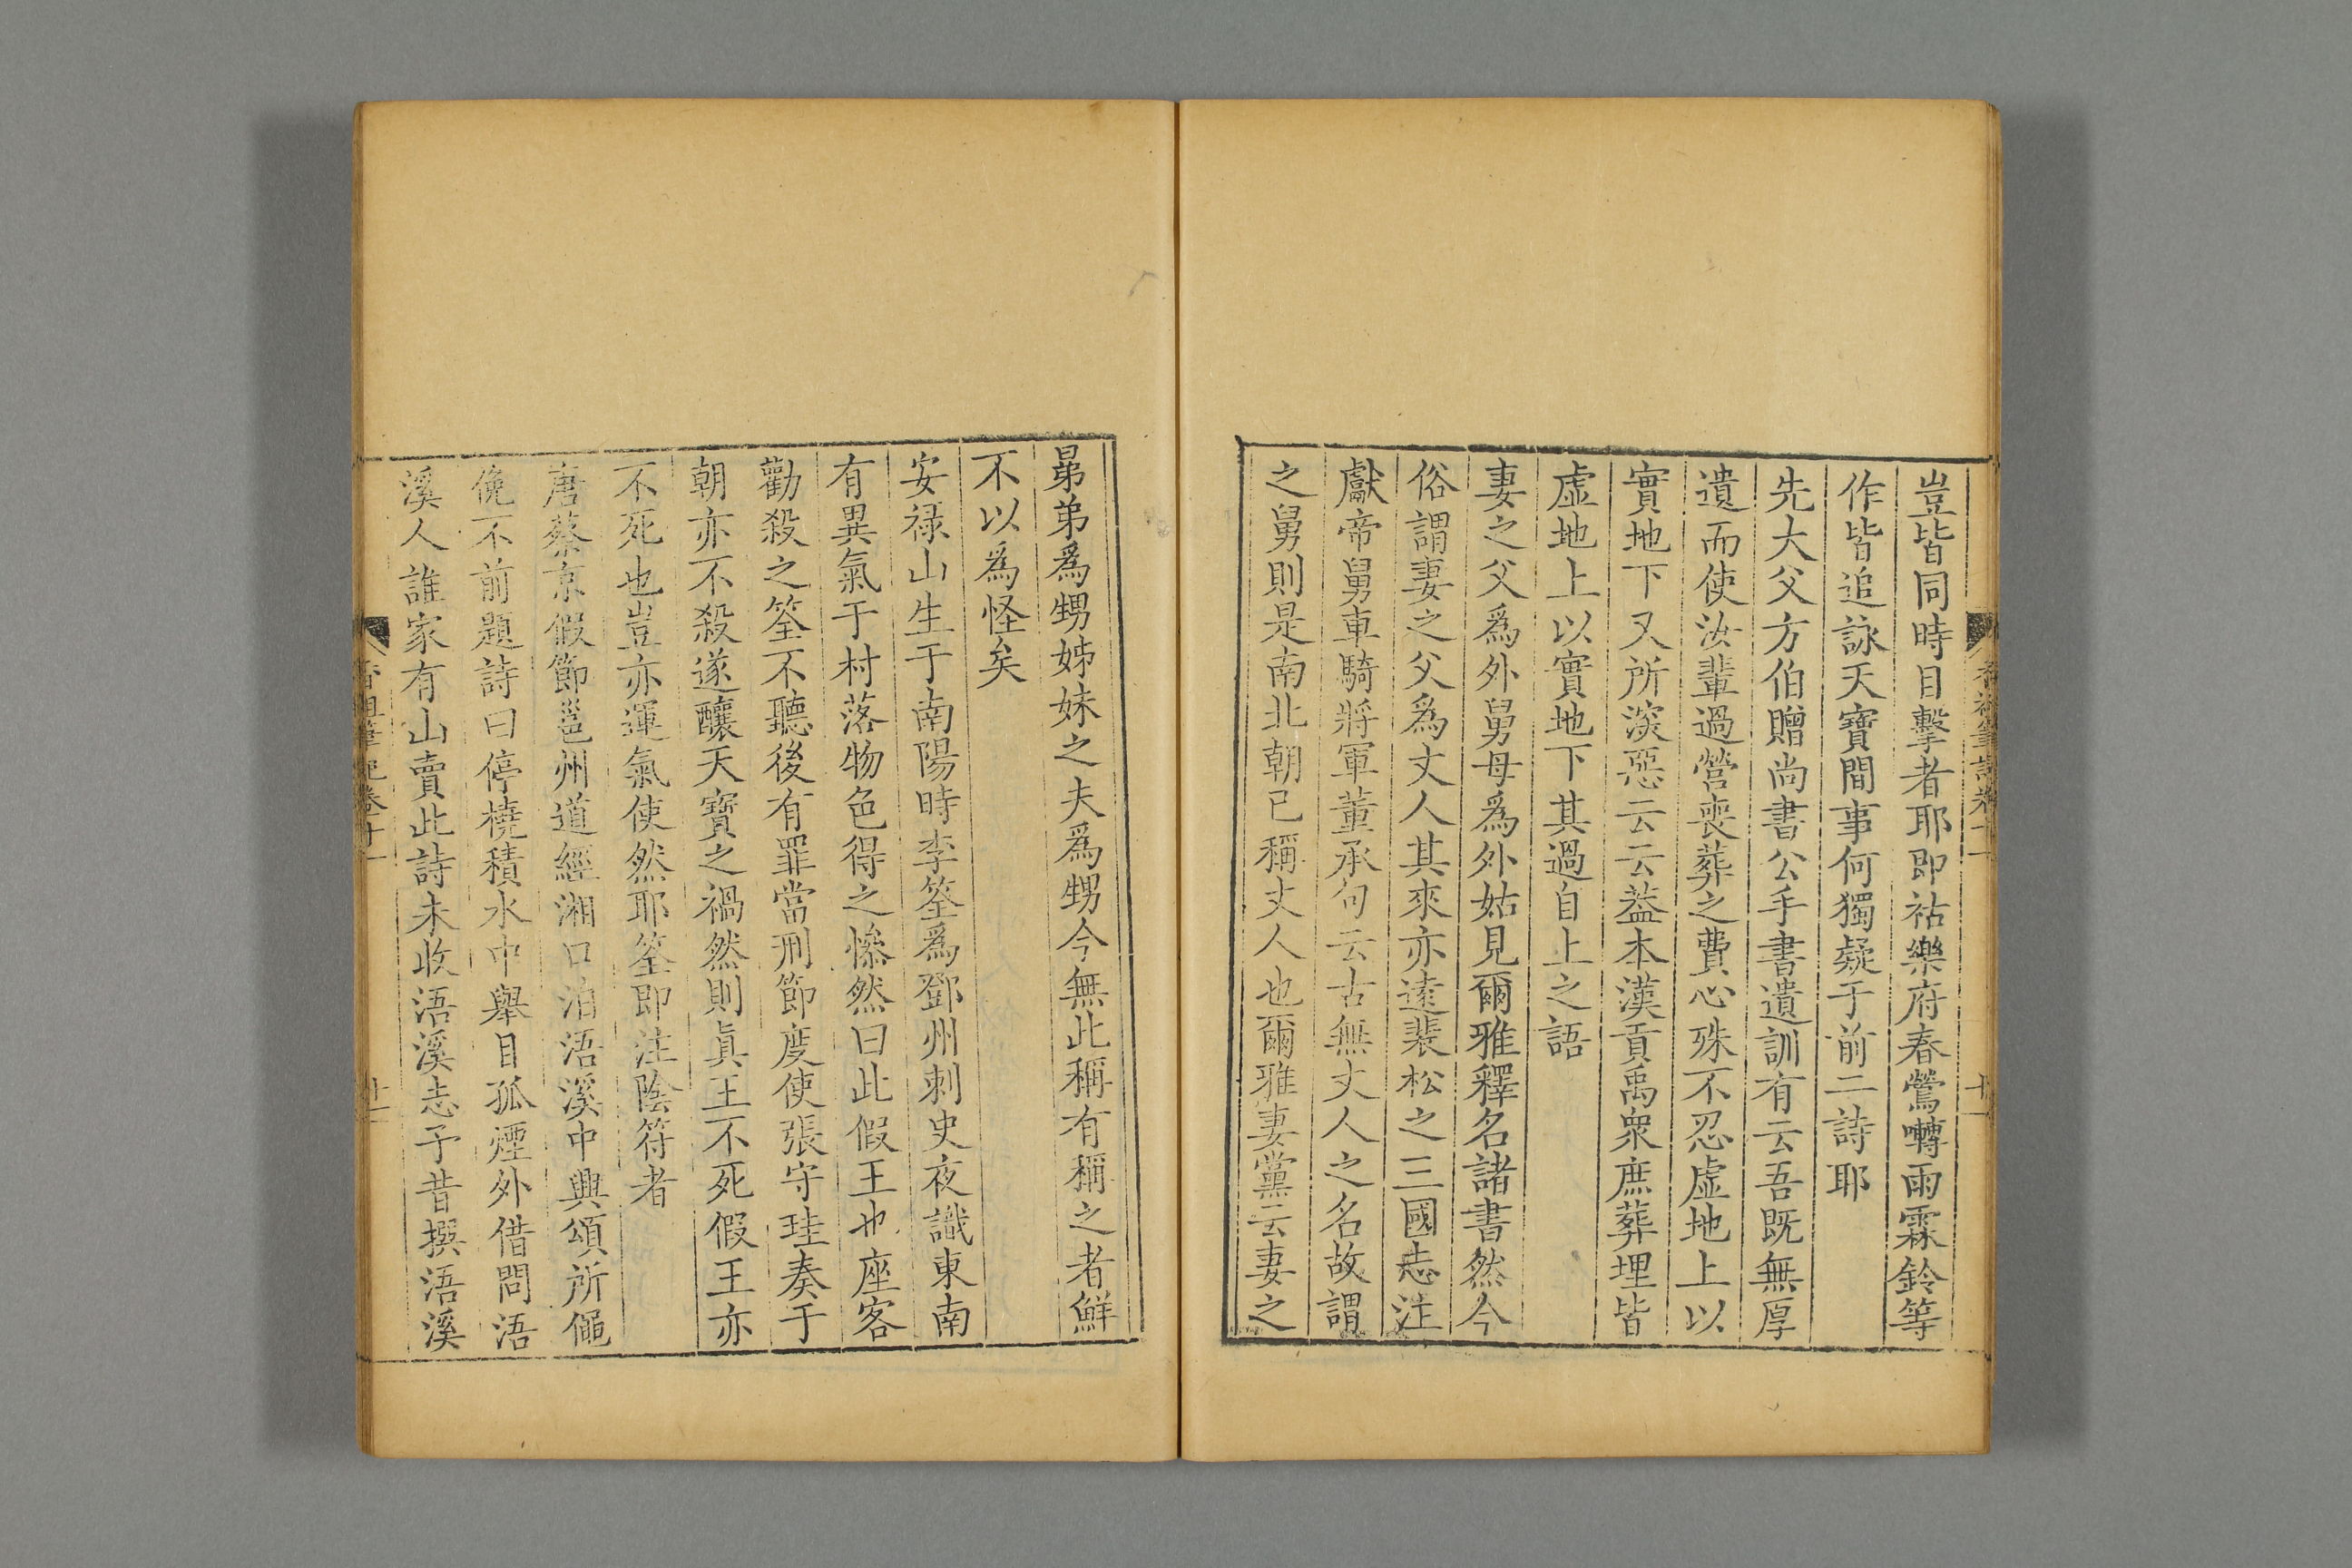 豈皆同時目擊者耶即祜樂府春鶯囀雨霖鈴等
作皆追詠天寶間事何獨疑于前二詩耶
先大父方伯贈尚書公手書遺訓有云吾既無厚
遺而使汝輩過營喪葬之費心殊不忍虛地上以
實地下又所深惡云云蓋本漢貢禹衆庶葬埋皆
虛地上以實地下其過自上之語
妻之父爲外舅母爲外姑見爾雅釋名諸書然今
俗謂妻之父爲丈人其來亦遠裴松之三國志注
獻帝舅車騎將軍董承句云古無丈人之名故謂
之舅則是南北朝已稱丈人也爾雅妻黨云妻之
晜弟爲甥姊妹之夫爲甥今無此稱有稱之者鮮
不以爲怪矣
安祿山生于南陽時李筌爲鄧州刺史夜識東南
有異氣于村落物色得之慘然曰此假王也座客
勸殺之筌不聽後有罪當刑節度使張守珪奏于
朝亦不殺遂釀天寶之禍然則眞王不死假王亦
不死也豈亦運氣使然耶筌即注陰符者
唐蔡京假節邕州道經湘口泊浯溪中興頌所僶
俛不前題詩曰停橈積水中舉目孤煙外借問浯
溪人誰家有山賣此詩未收浯溪志予昔撰浯溪
香祖筆記卷十一